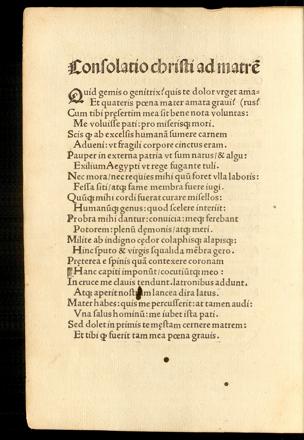 Conſolatio chriſti ad matrē
Quid gemis o genitrix? quis te dolor vrget ama-
Et quateris pœna mater amata graui? (rus?
Cum tibi pręſertim mea ſit bene nota voluntas:
Me voluiſſe pati: pro miſerisq̃ mori.
Scis q̃ ab excelſis humanā ſumere carnem
Adueni: vt fragili corpore cinctus eram.
Pauper in externa patria vt ſum natus/& algu:
Exilium Aegypti vt rege fugante tuli.
Nec mora/nec requies mihi quū foret vlla laboris:
Feſſa ſiti/atq̃ fame membra fuere iugi.
Quūq̃ mihi cordi fuerat curare miſellos:
Humanūq̃ genus: quod ſcelere interiit:
Probra mihi dantur: conuicia: meq̃ ferebant
Potorem: plenū dęmonis/atq̃ metri.
Milite ab indigno cędor colaphisq̃ alapisq̃:
Hinc ſputo & virgis ſqualida mēbra gero.
Pręterea e ſpinis quā contexere coronam
Hanc capiti imponūt/cocutiūtq̃ meo:
In cruce me clauis tendunt. latronibus addunt.
Atq̃ aperit noſtram lancea dira latus.
Mater habes: quis me percuſſerit: at tamen audi:
Vna ſalus hominū: me iubet iſta pati.
Sed dolet in primis te męſtam cernere matrem:
Et tibi q̃ fuerit tam mea pœna grauis.